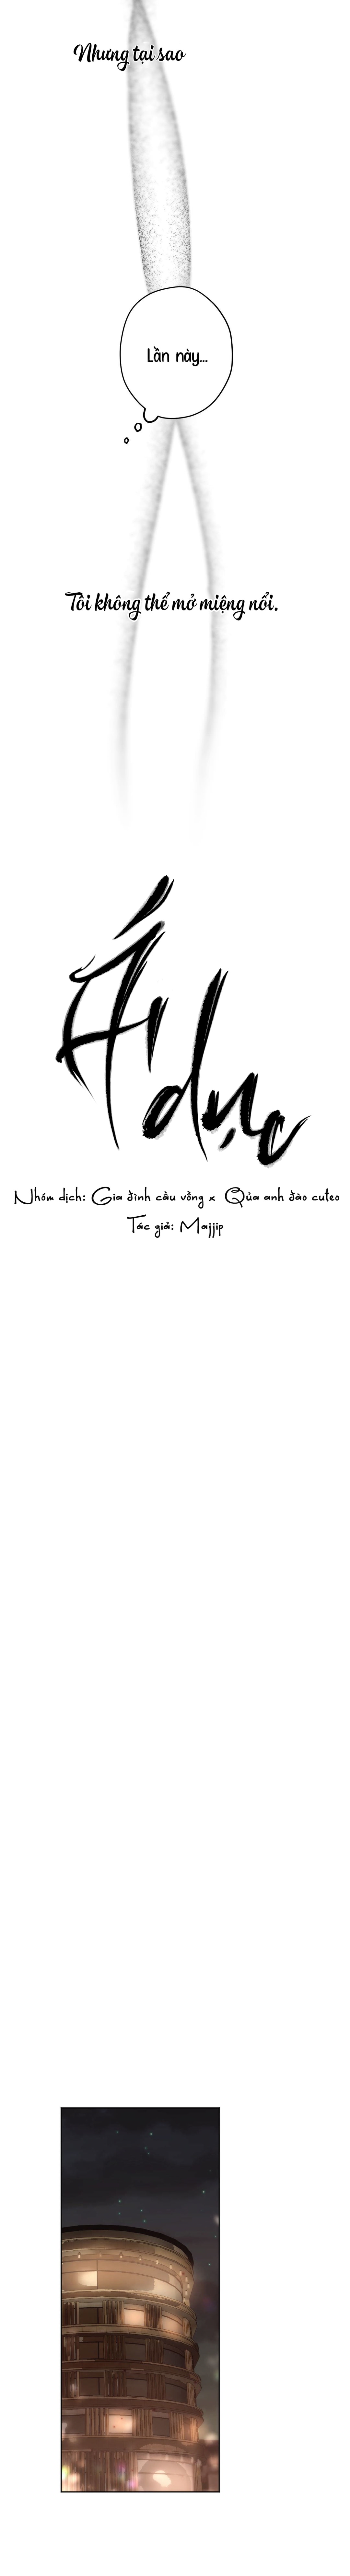 Nhưng tại sao
Lần này...
Tôi không thể mở miệng nổi.
Ái dục
Nhóm dịch: Gia đình cầu vồng x Qủa anh đào cuteo
Tác giả: Majjip